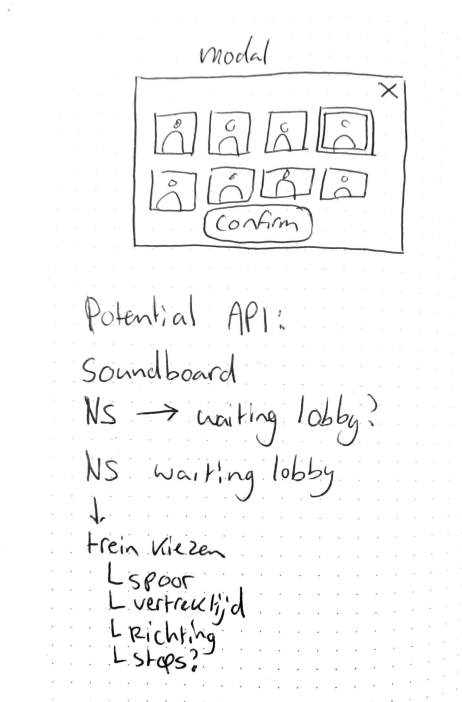 modal
X
Confirm
Potential API:
Soundboard
NS → waiting lobby?
NS waiting lobby
↓
trein kiezen
L spoor
L vertrektijd
L Richting
L stops?